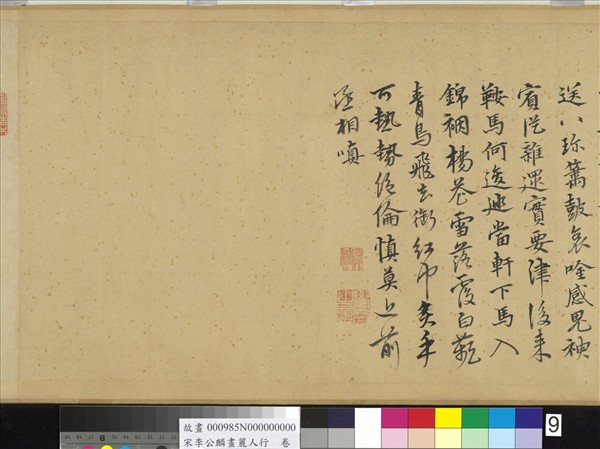 送八珍簫鼓哀吟感鬼神
賓從雜遝實要津後來
鞍馬何逡巡當軒下馬入
錦裀楊花雪落覆白蘋
青鳥飛去銜紅巾炙手
可熱勢絕倫慎莫近前
丞相嗔
故畫 000985N000000000
宋李公麟畫麗人行 卷
9